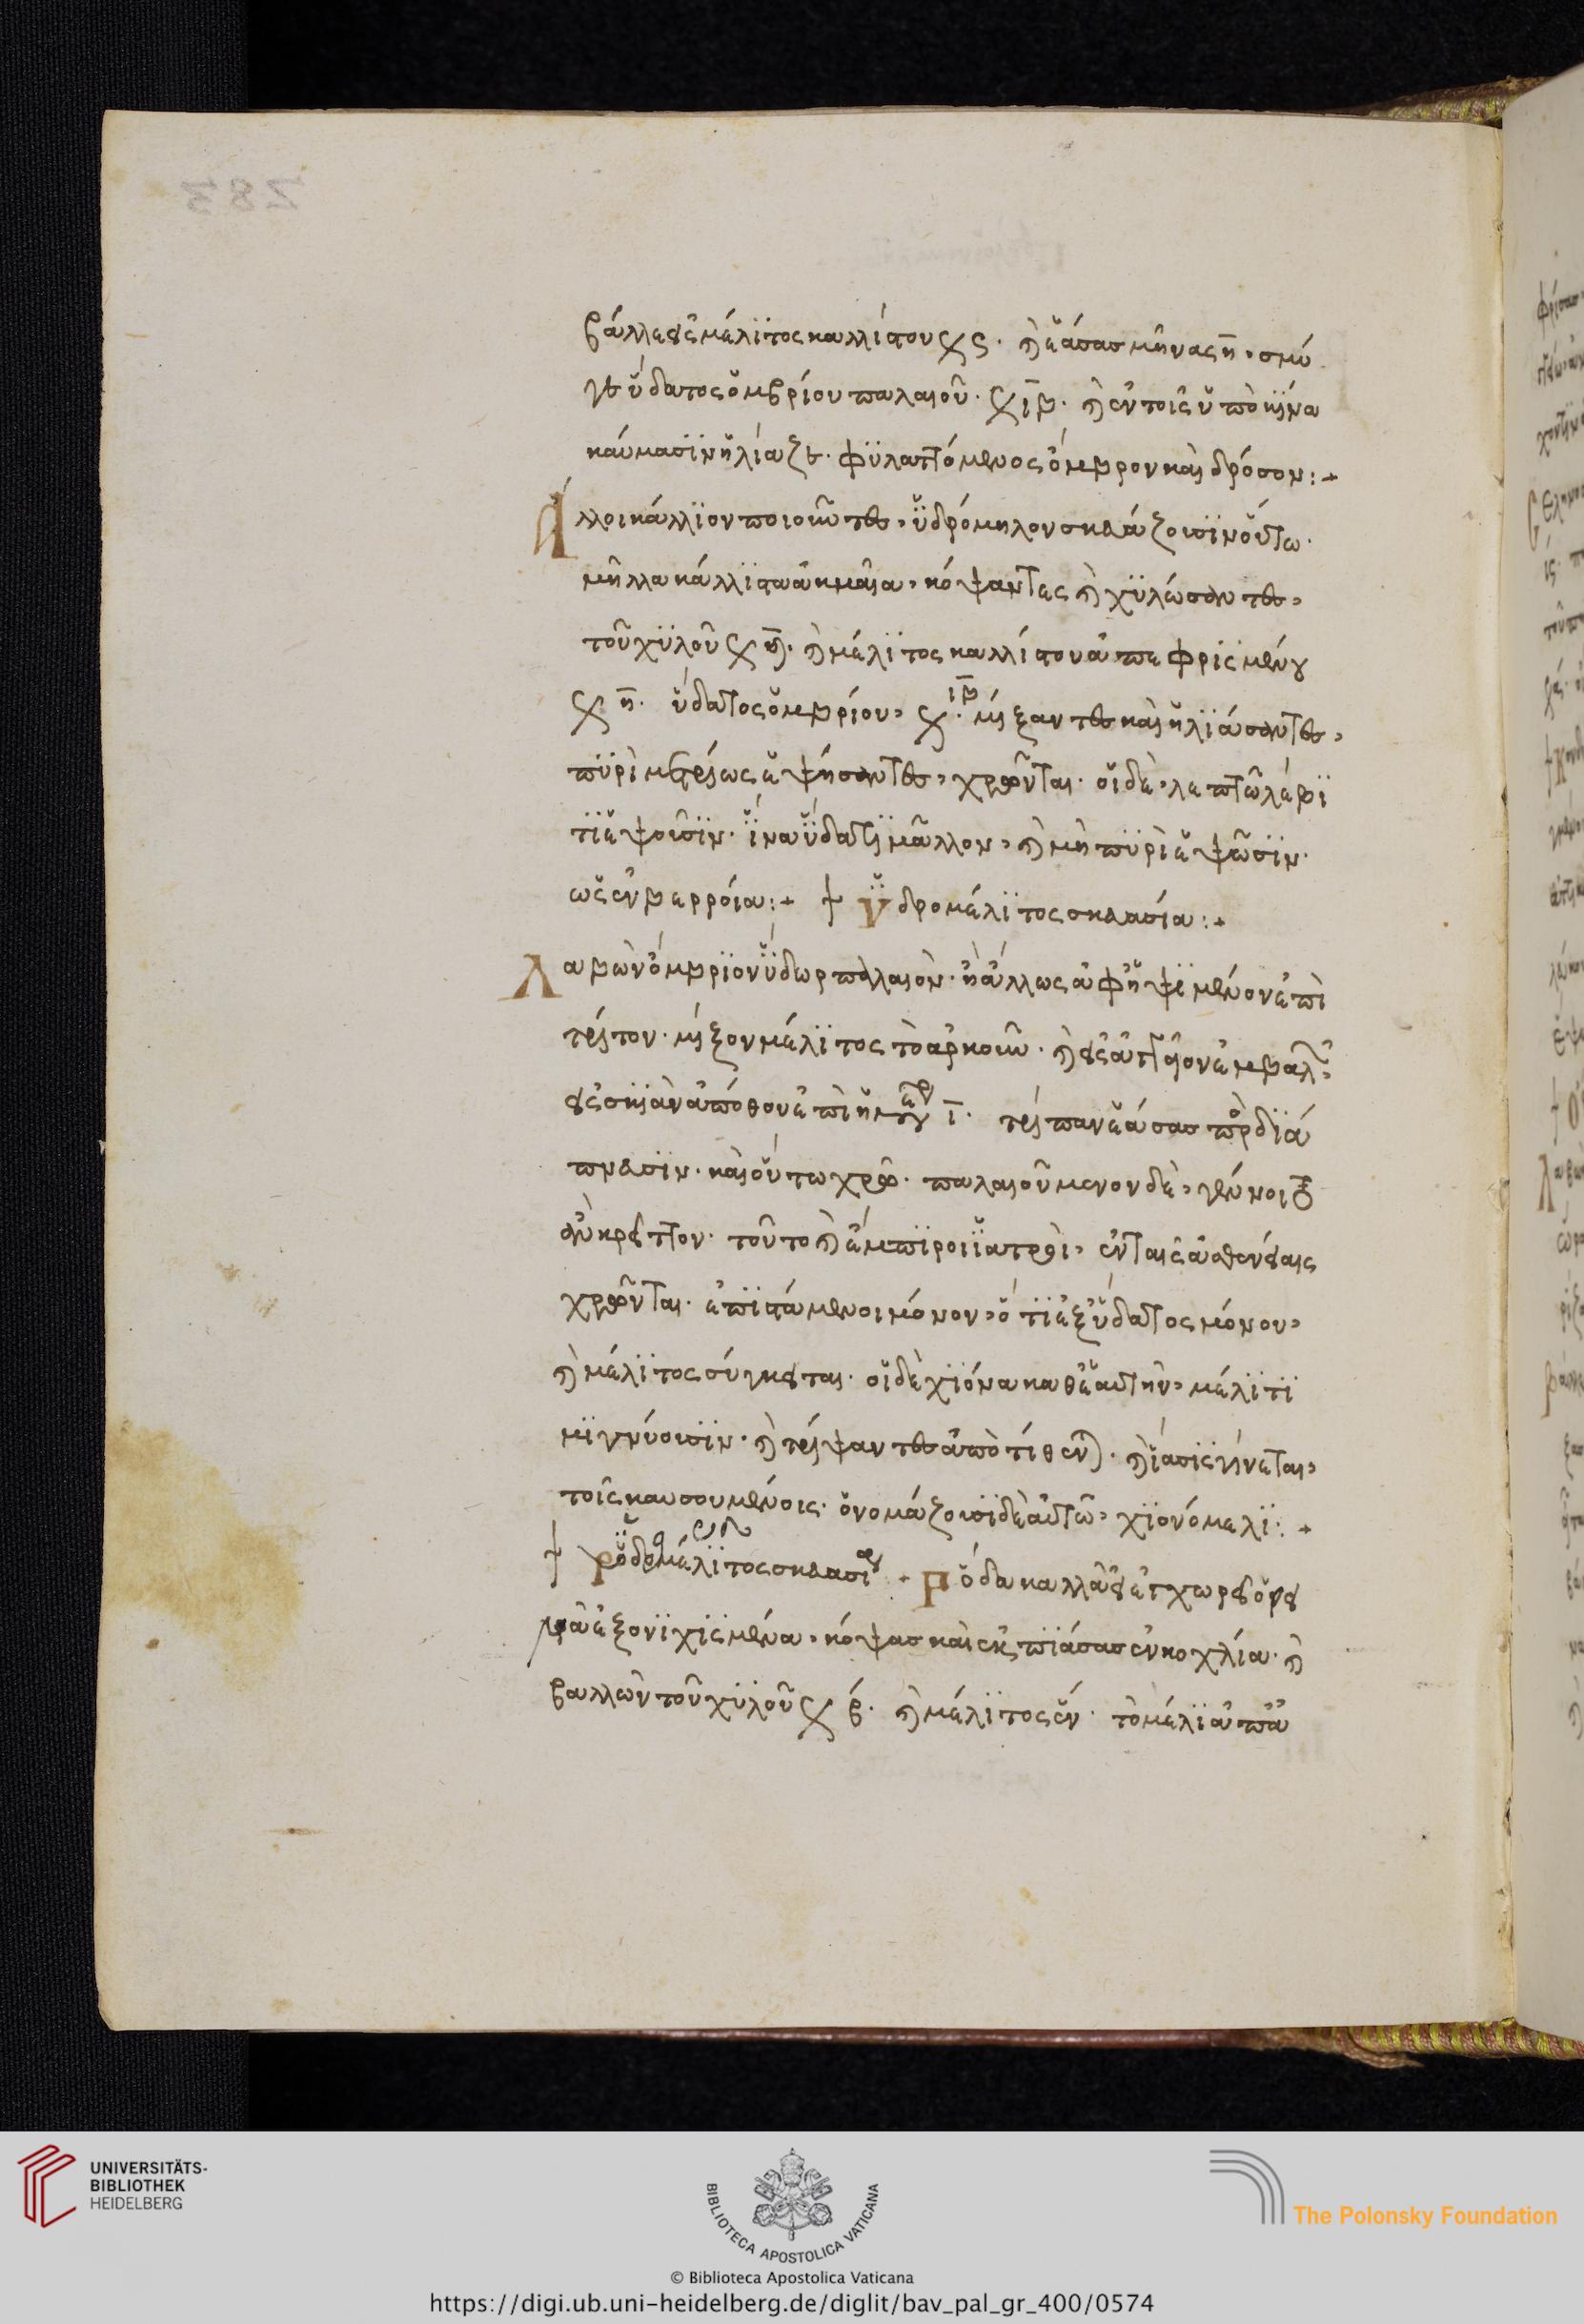 βάλλει εἰς μέλιτος καλλίστου ξ ϛ. καὶ ἐάσας μῆνας η. σμή
γε ὕδατος ὀμβρίου παλαιοῦ. ξ ιβ. καὶ ἐν τοῖς ὑπὸ κύνα
καύμασιν ἡλίαζε. φυλαττόμενος ὄμβρον καὶ δρόσον:
Ἄλλοι κάλλιον ποιοῦντες, ὑδρόμηλον σκευάζουσιν οὕτω.
μῆλλα κάλλιστα ἀκμαῖα, κόψαντες καὶ χυλώσαντες,
τοῦ χυλοῦ ξ. καὶ μέλιτος καλλίστου ἀπεφρισμένου
ξ η. ὕδατος ὀμβρίου, ξ. ιβ μίξαντες καὶ ἡλιάσαντες,
πυρὶ μετρίως ἑψήσαντες, χρῶνται. οἱ δὲ, λεπτῶ λέβι
τι ἕψουσιν. ἵνα ὕδατι μᾶλλον, καὶ μὴ πυρὶ ἕψωσιν.
ὡς ἐν βερροία: Ὑδρομέλιτος σκευασία:
Λαβὼν ὄμβριον ὕδωρ παλαιὸν. ἢ ἄλλως ἀφηψιμένον ἐπὶ
τρίτον. μίξον μέλιτος τὸ ἀρκοῦν. καὶ εἰς ἀγγεῖον ἐμβαλών
εἰς σκιὰν ἀπόθου ἐπὶ ἡμέρ ι. τρύπαν ἐάσας πρὸς διά
πνευσιν. καὶ οὕτω χρῶ. παλαιούμενον δὲ, γένοιτο
ἂν κρεῖττον. τοῦτο καὶ ἔμπιροι ἰατροὶ, ἐν ταῖς ἀσθενείαις
χρῶνται. ἐπιστάμενοι μόνον, ὅτι ἐξ ὕδατος μόνου,
καὶ μέλιτος σύγκειται. οἱ δὲ χιόνα καθεαυτὴν, μέλιτι
μιγνύουσιν. καὶ τρίψαντες ἀποτίθενται. καὶ ἴασις γίνεται,
τοῖς καυσουμένοις. ὀνομάζουσι δὲ αὐτῶ, χιονόμελι:
Ῥοδομέλιτος σκευασία Ῥόδα καλλὰ εἰ ἐγχωρεῖ ὄρει
να ἐξονιχισμένα, κόψας καὶ ἐκπιάσας ἐν κοχλία. καὶ
βαλλὼν τοῦ χυλοῦ ξ β. καὶ μέλιτος ἓν. τὸ μέλι ἀπα
UNIVERSITÄTS-
BIBLIOTHEK
HEIDELBERG
BIBLIOTECA APOSTOLICA VATICANA
The Polonsky Foundation
© Biblioteca Apostolica Vaticana
https://digi.ub.uni-heidelberg.de/diglit/bav_pal_gr_400/0574